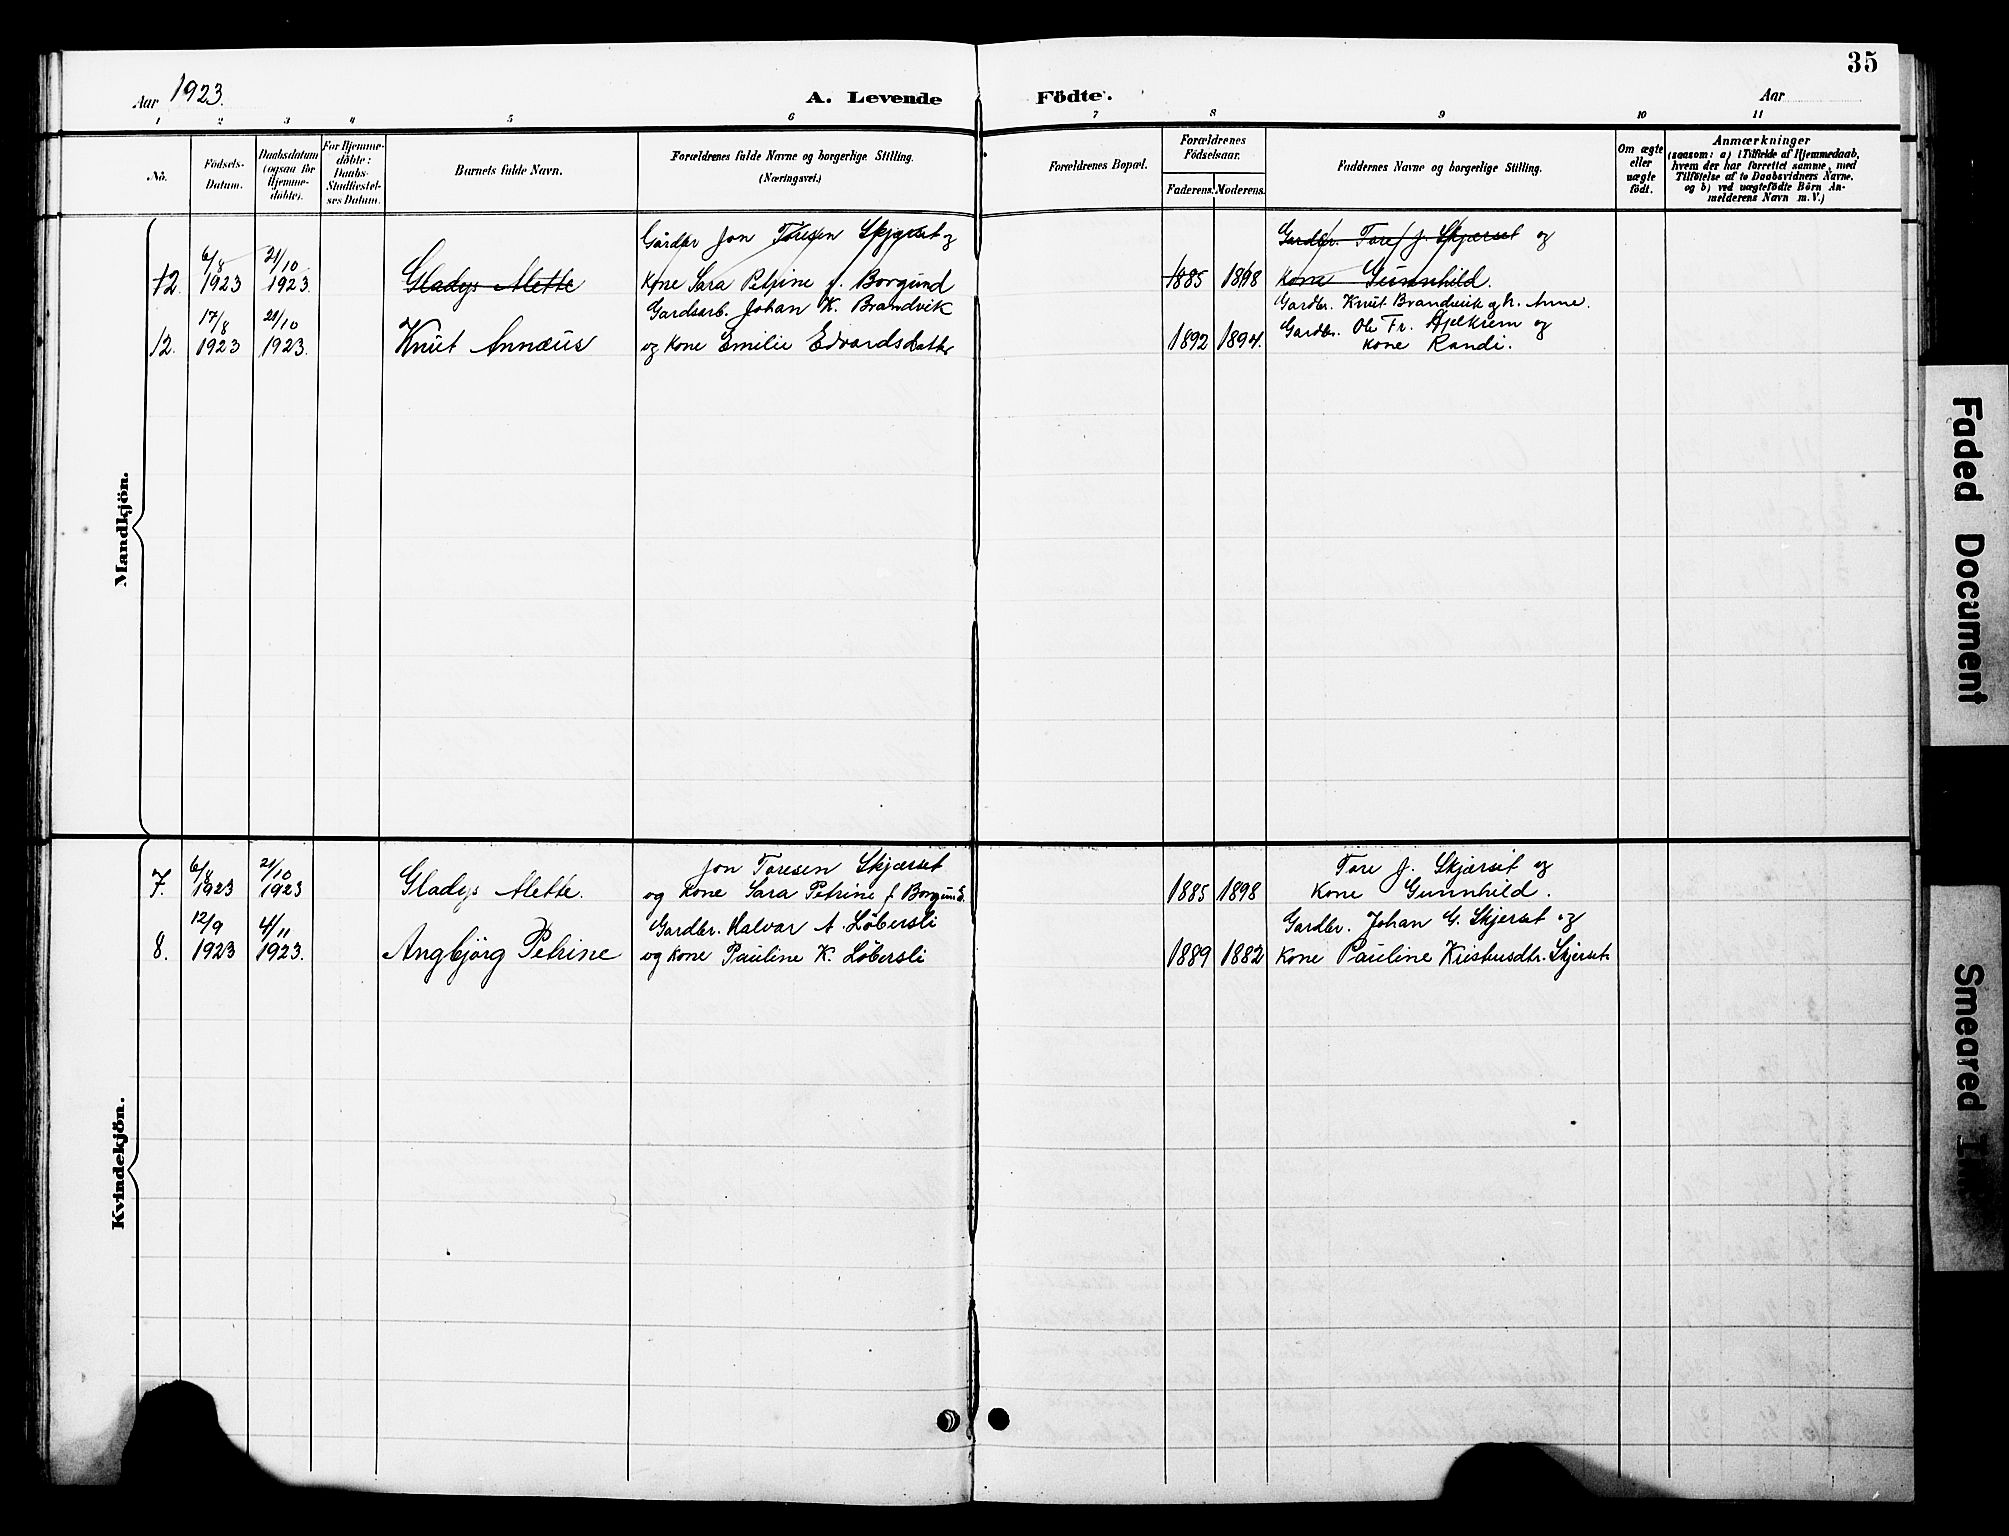 35
Aar 1923.
A. Levende Födte.
Aar
1 2 3 4 5 6 7 8 9 10 11
No.
Födsels-
Datum.
Daabsdatum
(ogsaa for
Hjemme-
döbte).
For Hjemme-
döbte:
Daabs-
Stadfæstel-
ses Datum.
Barnets fulde Navn.
Forældrenes fulde Navne og borgerlige Stilling.
(Næringsvei.)
Forældrenes Bopæl.
Forældrenes
Födselsaar.
Faderens. Moderens.
Faddernes Navne og borgerlige Stilling.
Om ægte
eller
uægte
födt.
Anmærkninger
(saasom: a) i Tilfælde af Hjemmedaab,
hvem der har forrettet samme, med
Tilföielse af to Daabsvidners Navne.
og b) ved uægtefödte Börn An-
melderens Navn m. V.)
Mandkjön.
Gårdbr Jon Toresen Skjærset og
Gardbr. Tore J. Skjærset og
12. 6/8 1923 21/10 1923. Gladys Alette Kone Sara Petrine f. Borgund 1885 1898 Kone Gunnhild.
Gardsarb. Johan K. Brandvik
Gardbr. Knut Brandvik og h. Anne.
12. 17/8 1923 21/10 1923. Knut Annæus og Kone Emilie Edvardsdatter 1892 1894. Gardbr. Ole Fr. Hjelkrem og
Kone Randi.
Kvindekjön.
Jon Toresen Skjærset
Tore J. Skjærset og
7. 6/8 1923 21/10 1923 Gladys Alette. og Kone Sara Petrine f Borgund. 1885 1898 Kone Gunnhild.
Gardbr. Halvar A. Löbersli
Gardbr. Johan G. Skjerset og
8. 12/9 1923 4/11 1923. Angbjörg Petrine og Kone Pauline K. Löbersli 1889 1882 Kone Pauline Kristensdtr. Skjerset
Faded Document
Smeared